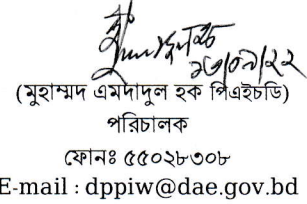 ১৩/০৯/২২
(মুহাম্মদ এমদাদুল হক পিএইচডি)
পরিচালক
ফোনঃ ৫৫০২৮৩০৮
E-mail : dppiw@dae.gov.bd